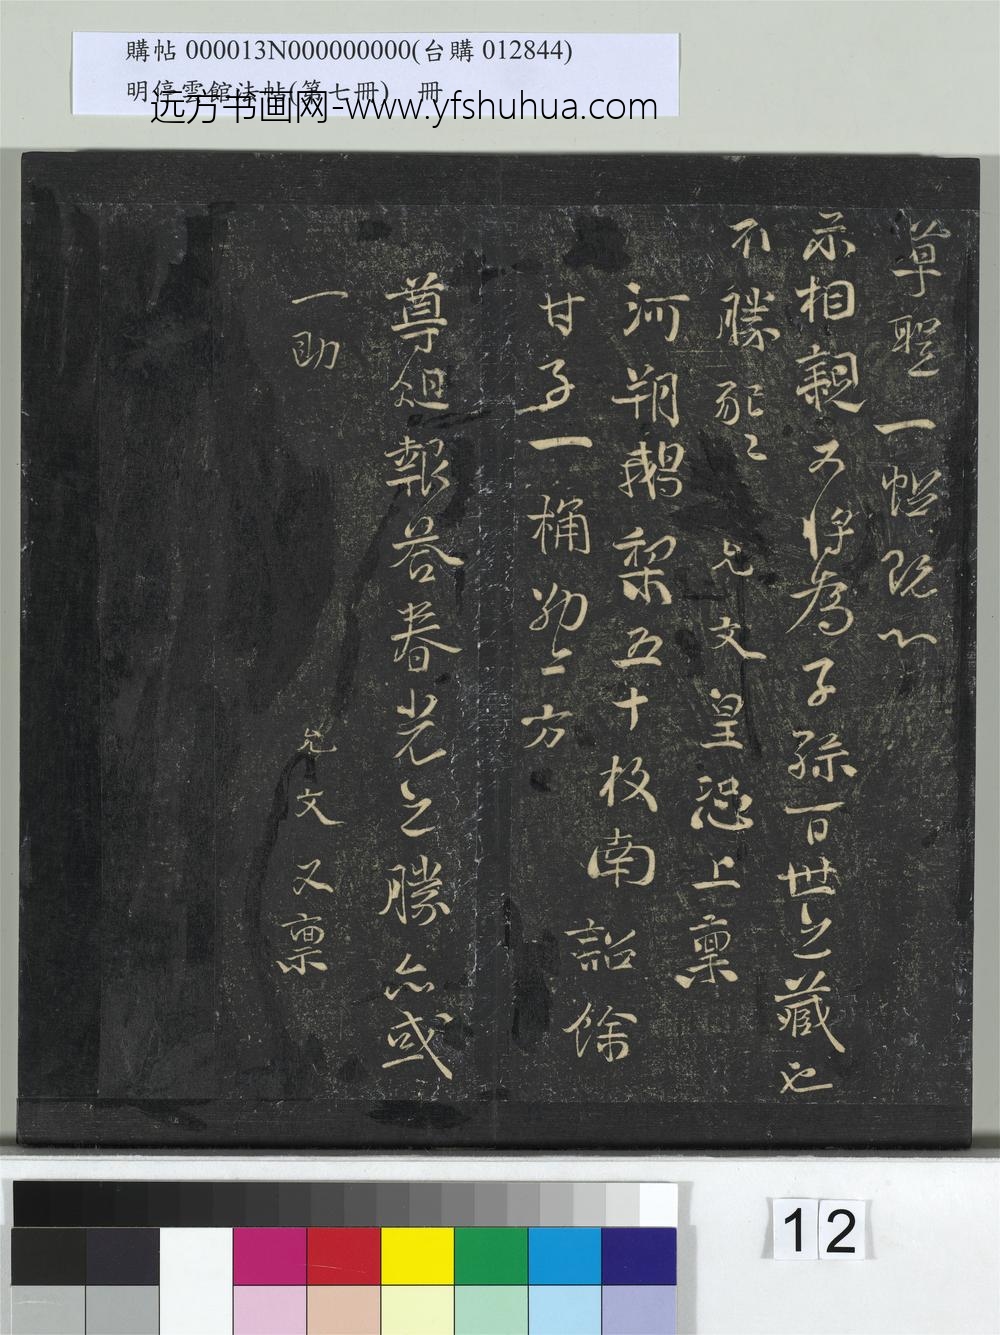 購帖 000013N000000000(台購 012844)
明停雲館法帖(第七冊) 冊
远方书画网-www.yfshuhua.com
草聖一幅既以
示相親又將為子孫百世之藏也
不勝 允文皇恐上稟
河朔鵝梨五十枚南詔餘
甘子一桶 方
尊俎報答春光之勝亦或
一助 允文又稟
12